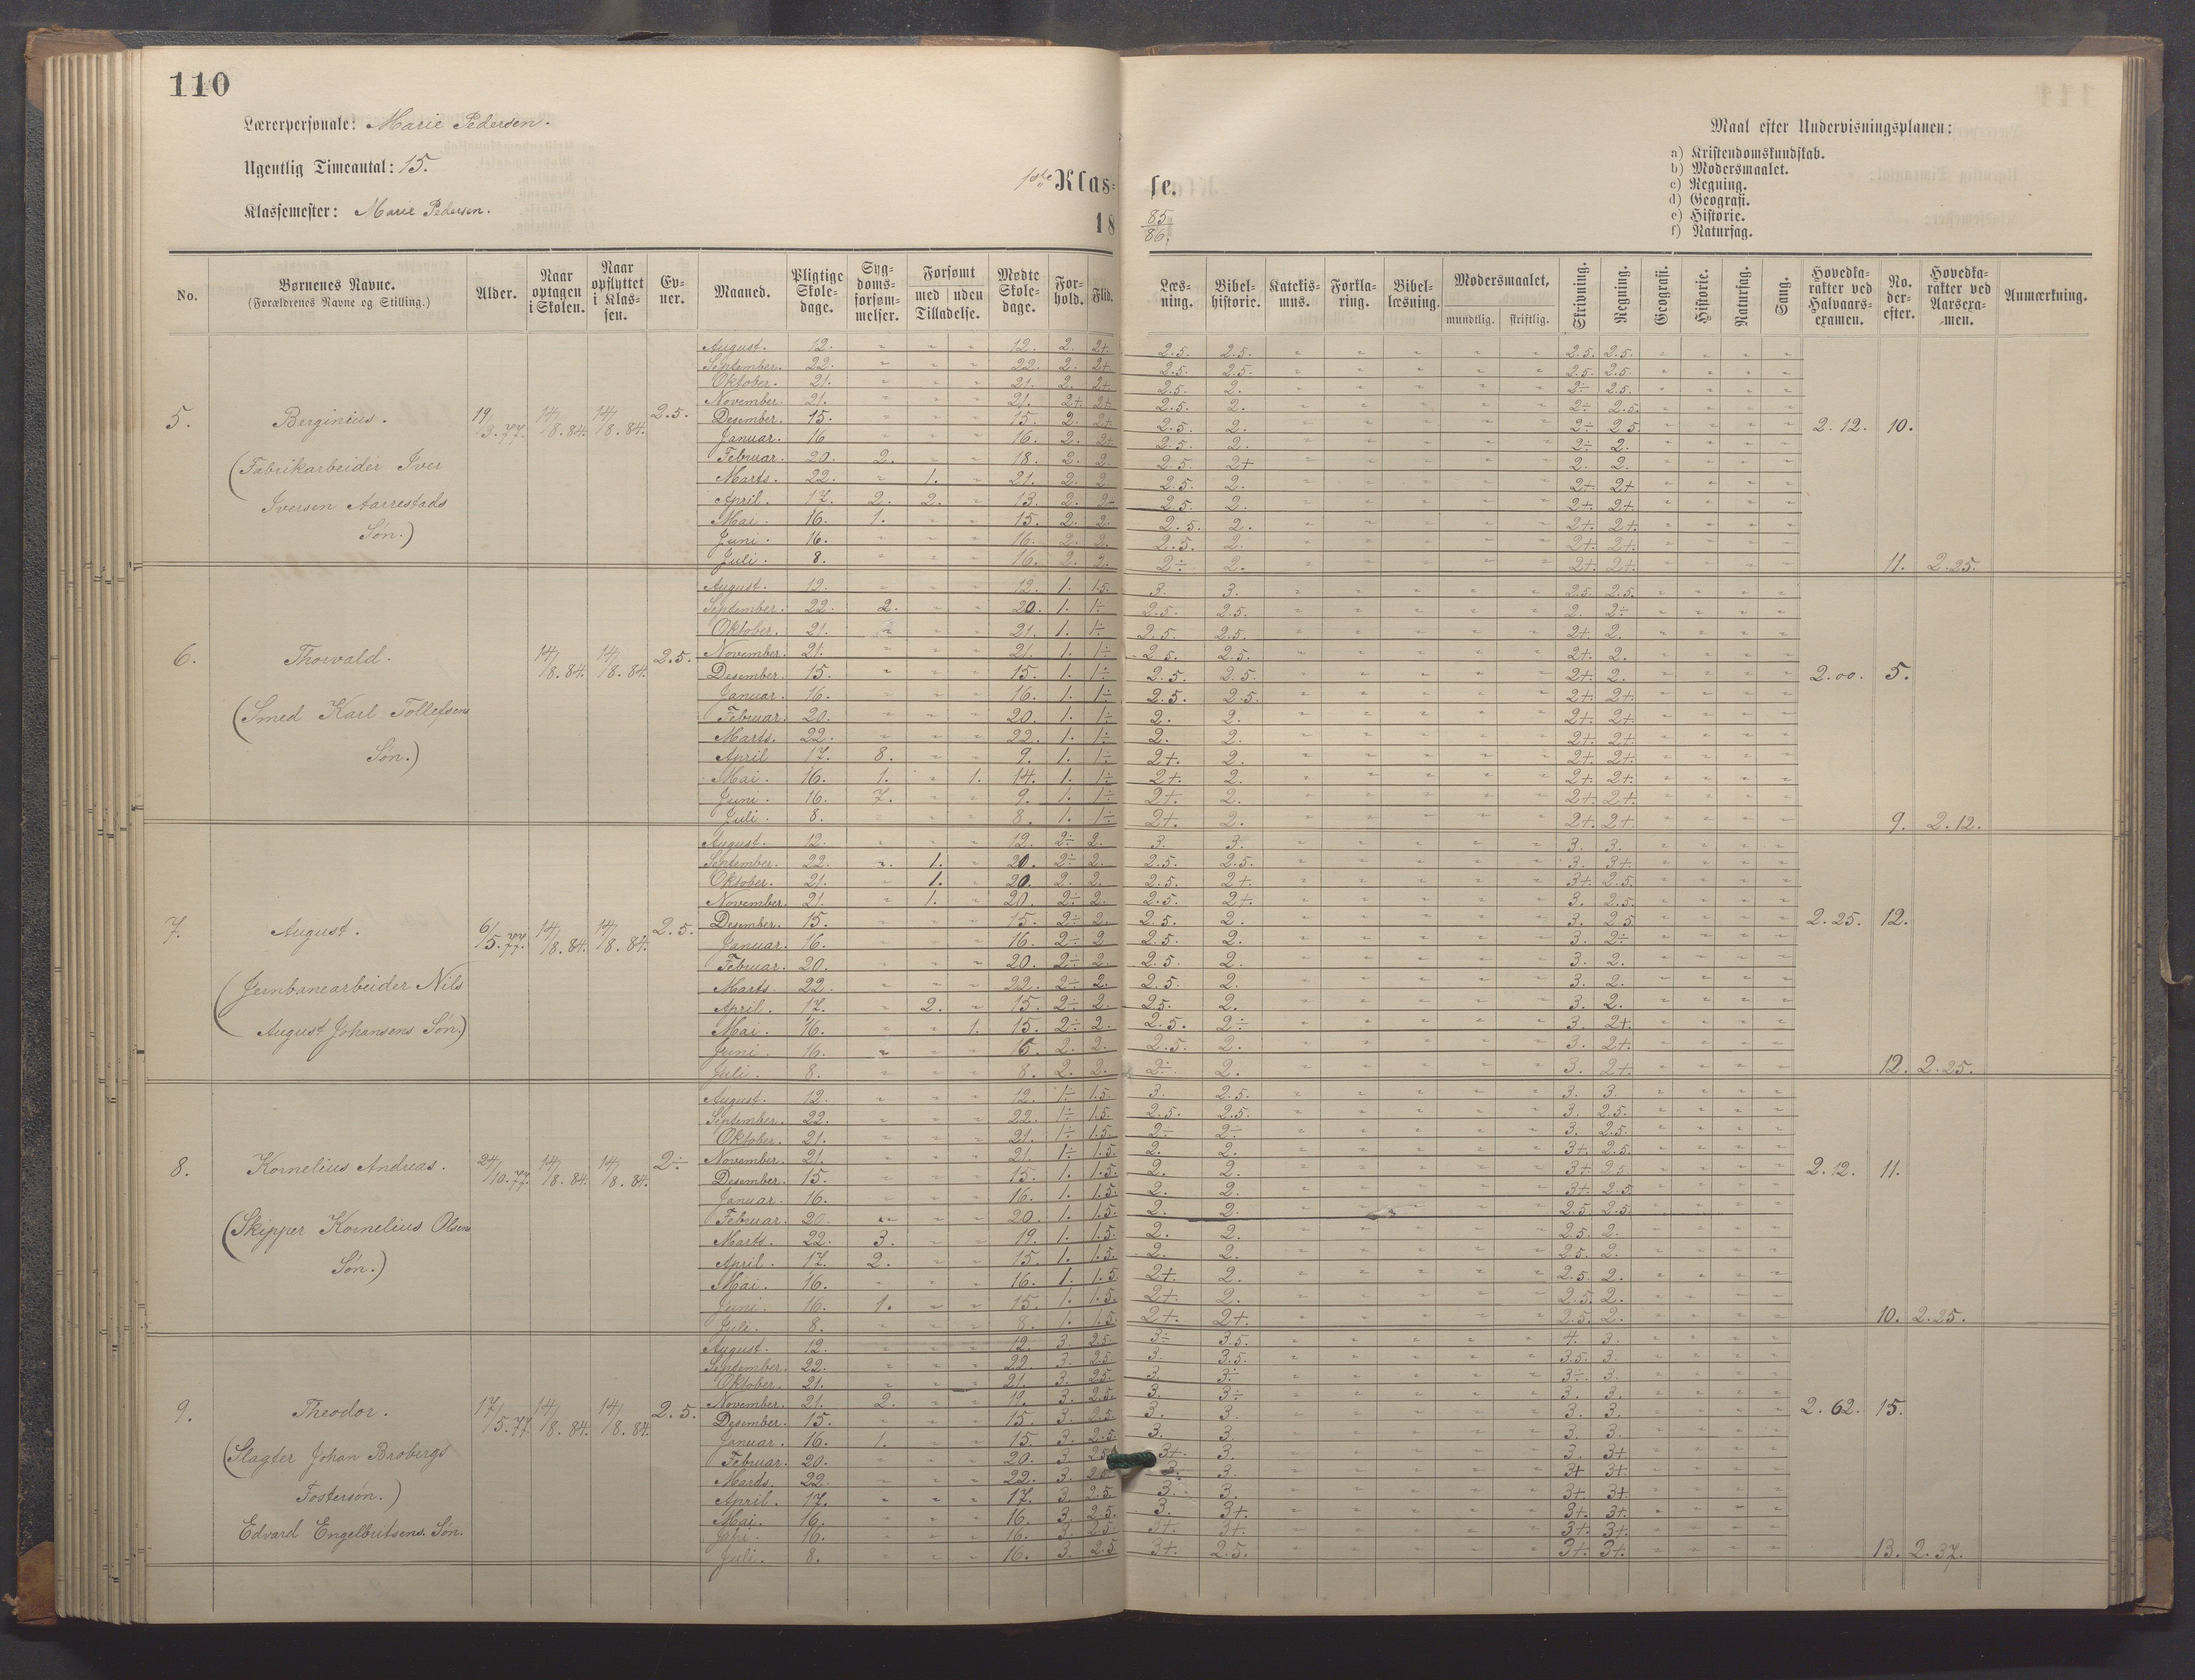 110
Lærerpersonale: Marie Pedersen.
Ugentlig Timeantal: 15.
Klassemester: Marie Pedersen.
1ste Klas-
se.
18
85/86.
Maal efter Undervisningsplanen:
a) Kristendomskundskab.
b) Modersmaalet.
c) Regning.
d) Geografi.
e) Historie.
f) Naturfag.
No. Børnenes Navne. (Forældrenes Navne og Stilling.) Alder. Naar optagen i Skolen. Naar opflyttet i Klassen. Evner. Maaned. Pligtige Skoledage. Sygdomsforsømmelser. Forsømt med uden Tilladelse. Mødte Skoledage. Forhold. Flid.
Læsning. Bibelhistorie. Katekismus. Forklaring. Bibellæsning. Modersmaalet, mundtlig. skriftlig. Skrivning. Regning. Geografi. Historie. Naturfag. Sang. Hovedkarakter ved Halvaarsexamen. No. derefter. Hovedkarakter ved Aarsexamen. Anmærkning.
5. Berginius. 19/3.77. 14/8.84. 14/8.84. 2.5.
(Fabrikarbeider Iver
Iversen Aarrestads
Søn.)
August. 12. " " " 12. 2. 2+. 2.5. 2.5. 2.5. 2.5.
September. 22. " " " 22. 2. 2+. 2.5. 2.5. 2.5. 2.5.
Oktober. 21. " " " 21. 2. 2+. 2.5. 2. 2÷ 2.5.
November. 21. " " " 21. 2+. 2+. 2.5. 2. 2÷ 2.5.
Desember. 15. " " " 15. 2. 2+. 2.5. 2. 2÷ 2.5. 2.12. 10.
Januar. 16 " " " 16. 2. 2+. 2.5. 2. 2÷ 2.
Februar. 20. 2. " " 18. 2. 2. 2.5. 2+ 2. 2.
Marts. 22. " 1. " 21. 2. 2. 2.5. 2. 2+ 2+
April. 17. 2. 2. " 13. 2. 2.5. 2. 2+. 2+.
Mai. 16. 1. " " 15. 2. 2. 2.5. 2. 2+. 2+.
Juni. 16. " " " 16. 2. 2. 2.5. 2. 2+. 2+.
Juli. 8. " " " 16. 2. 2. 2÷ 2. 2+. 2+. 11. 2.25.
6. Thorvald. 14/8.84. 14/8.84. 2.5.
(Smed Karl Tollefsens
Søn.)
August. 12. " " " 12. 1. 1.5. 3. 3. 2.5. 2.5.
September. 22. 2. " " 20. 1. 1÷ 2.5. 2.5. 2. 2÷
Oktober. 21. " " 21. 1. 1÷ 2.5. 2.5. 2+. 2.
November. 21. " " " 21. 1. 1÷ 2.5. 2.5. 2+. 2.
Desember. 15. " " " 15. 1. 1÷ 2.5. 2.5. 2+. 2. 2.00. 5.
Januar. 16. " " " 16. 1. 1÷ 2.5. 2.5. 2+. 2+.
Februar. 20. " " " 20. 1. 1÷ 2. 2. 2+. 2+.
Marts. 22. " " " 22. 1. 1÷ 2. 2. 2+. 2+.
April 17. 8. " " 9. 1. 1÷ 2+. 2. 2+. 2+.
Mai. 16. 1. " 1. 14. 1. 1÷ 2+. 2. 2+. 2+.
Juni. 16. 7. " " 9. 1. 1÷ 2+. 2. 2+. 2+.
Juli. 8. " " " 8. 1. 1÷ 2+. 2. 2+. 2+. 9. 2.12.
7. August. 6/5.77. 14/8.84. 14/8.84. 2.5.
(Jernbanearbeider Nils
August Johansens Søn.)
August. 12. " " " 12. 2÷ 2. 3. 3. 3. 3.
September. 22. 1. " 20. 2÷ 2. 2.5. 2.5. 3. 3+.
Oktober. 21. " 1. " 20. 2. 2. 2.5. 2+. 3+. 2.5.
November. 21. " 1. " 20. 2÷ 2. 2.5. 2+. 3. 2.5.
Desember. 15. " " " 15. 2÷ 2. 2.5. 2. 3. 2.5 2.25. 12.
Januar. 16. " " " 16. 2÷ 2 2.5. 2. 3. 2÷
Februar. 20. " " " 20. 2÷ 2. 2.5. 2. 3. 2.
Marts. 22. " " " 22. 2÷ 2. 2.5. 2. 3. 2.
April. 17. " 2. " 15. 2÷ 2. 2.5. 2. 3. 2.
Mai. 16. " " 1. 15. 2÷ 2. 2.5. 2÷ 3. 2+.
Juni. 16. " " " 16. 2. 2. 2.5. 2. 3. 2+.
Juli. 8. " " " 8. 2. 2. 2÷ 2. 3. 2+. 12. 2.25.
8. Kornelius Andreas. 24/10.77. 14/8.84. 14/8.84. 2÷
(Skipper Kornelius Olsens
Søn.)
August. 12. " " " 12. 1÷ 1.5. 3. 2.5. 3. 3.
September. 22. " " " 22. 1÷ 1.5. 2.5. 2.5. 3. 2.5.
Oktober. 21. " " " 21. 1÷ 1.5. 2÷ 2÷ 3. 2.5.
November. 21. " " " 21. 1÷ 1.5. 2. 2. 3+. 2.5.
Desember. 15. " " " 15. 1. 1.5. 2. 2. 3+. 2.5. 2.12. 11.
Januar. 16. " " " 16. 1. 1.5. 2. 2. 3+. 2.5.
Februar. 20. " " " 20. 1. 1.5. 2. 2. 2.5. 2.5.
Marts. 22. 3. " " 19. 1. 1.5. 2. 2. 2.5. 2.
April. 17. 2. " " 15. 1. 1.5. 2. 2. 2.5. 2.
Mai. 16. " " " 16. 1. 1.5. 2+. 2. 2.5. 2.
Juni. 16. 1. " " 15. 1. 1.5. 2+. 2. 2.5. 2.
Juli. 8. " " " 8. 1. 1.5. 2+. 2+. 2.5. 2. 10. 2.25.
9. Theodor. 17/5.77. 14/8.84. 14/8.84. 2.5.
(Slagter Johan Brobergs
Fostersøn.)
Edvard Engelbritsens Søn.
August. 12. " " " 12. 3. 2.5. 3÷ 3.5. 4. 3.
September. 22. " " " 22. 3. 2.5. 3. 3.5. 3.5. 3.
Oktober. 21. " " " 21. 3. 2.5. 3. 3÷ 3÷ 3.
November. 21. 2. " " 19. 3. 2.5. 3. 3÷ 3. 3.
Desember. 15. " " " 15. 3. 2.5. 3. 3. 3. 3. 2.62. 15.
Januar. 16. 1. " " 15. 3. 2.5 3. 3. 3. 3.
Februar. 20. " " " 20. 3. 2.5 3+. 3. 3. 3+.
Marts. 22. " " " 22. 3. 2.5 3. 3. 3+ 3+.
April. 17. " " " 17. 3. 2.5. 3. 3. 3+ 3+.
Mai. 16. " " " 16. 3. 2.5. 3. 3+. 3+. 3+.
Juni. 16. " " " 16. 3. 2.5 3+. 3+. 3+. 3+.
Juli. 8. " " " 16. 3. 2.5 3+. 2.5. 3+. 3+. 13. 2.37.